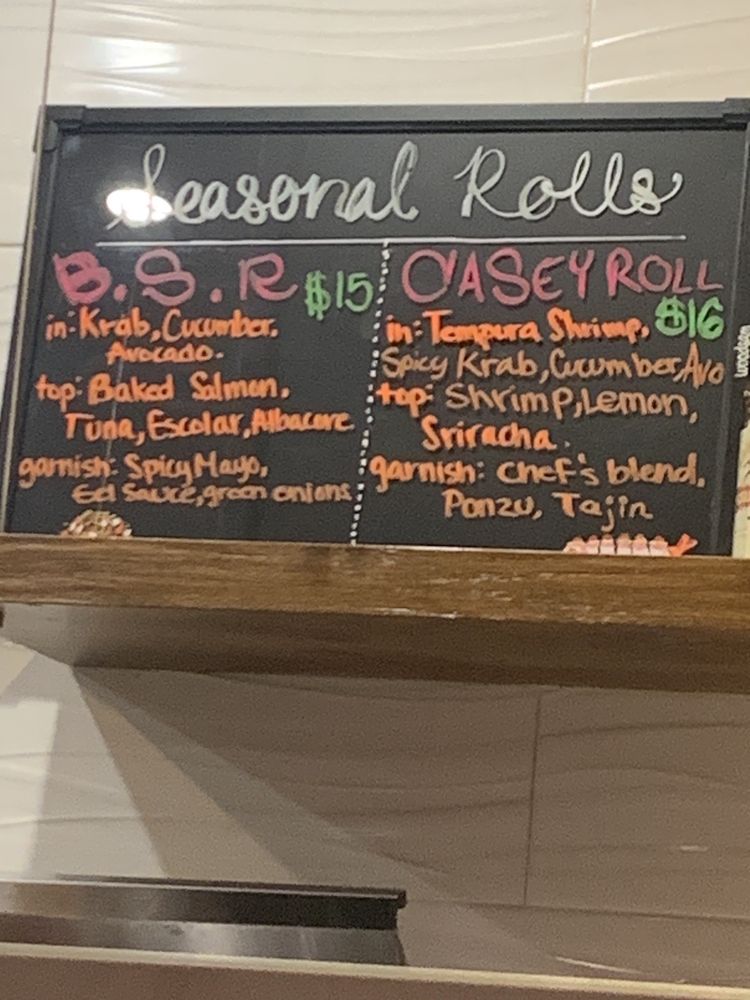 Seasonal Rolls
B.S.R $15
in: Krab, Cucumber.
Avocado.
top: Baked Salmon,
Tuna, Escolar, Albacore
garnish: Spicy Mayo,
Eel Sauce, green onions
CASEY ROLL
$16
in: Tempura Shrimp,
Spicy Krab, Cucumber, Avo
top: Shrimp, Lemon,
Sriracha.
garnish: Chef's blend,
Ponzu, Tajin